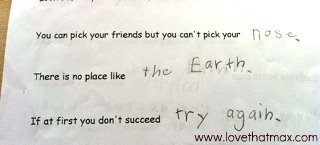 You can pick your friends but you can't pick your nose.
There is no place like the Earth.
If at first you don't succeed try again.
www.lovethatmax.com